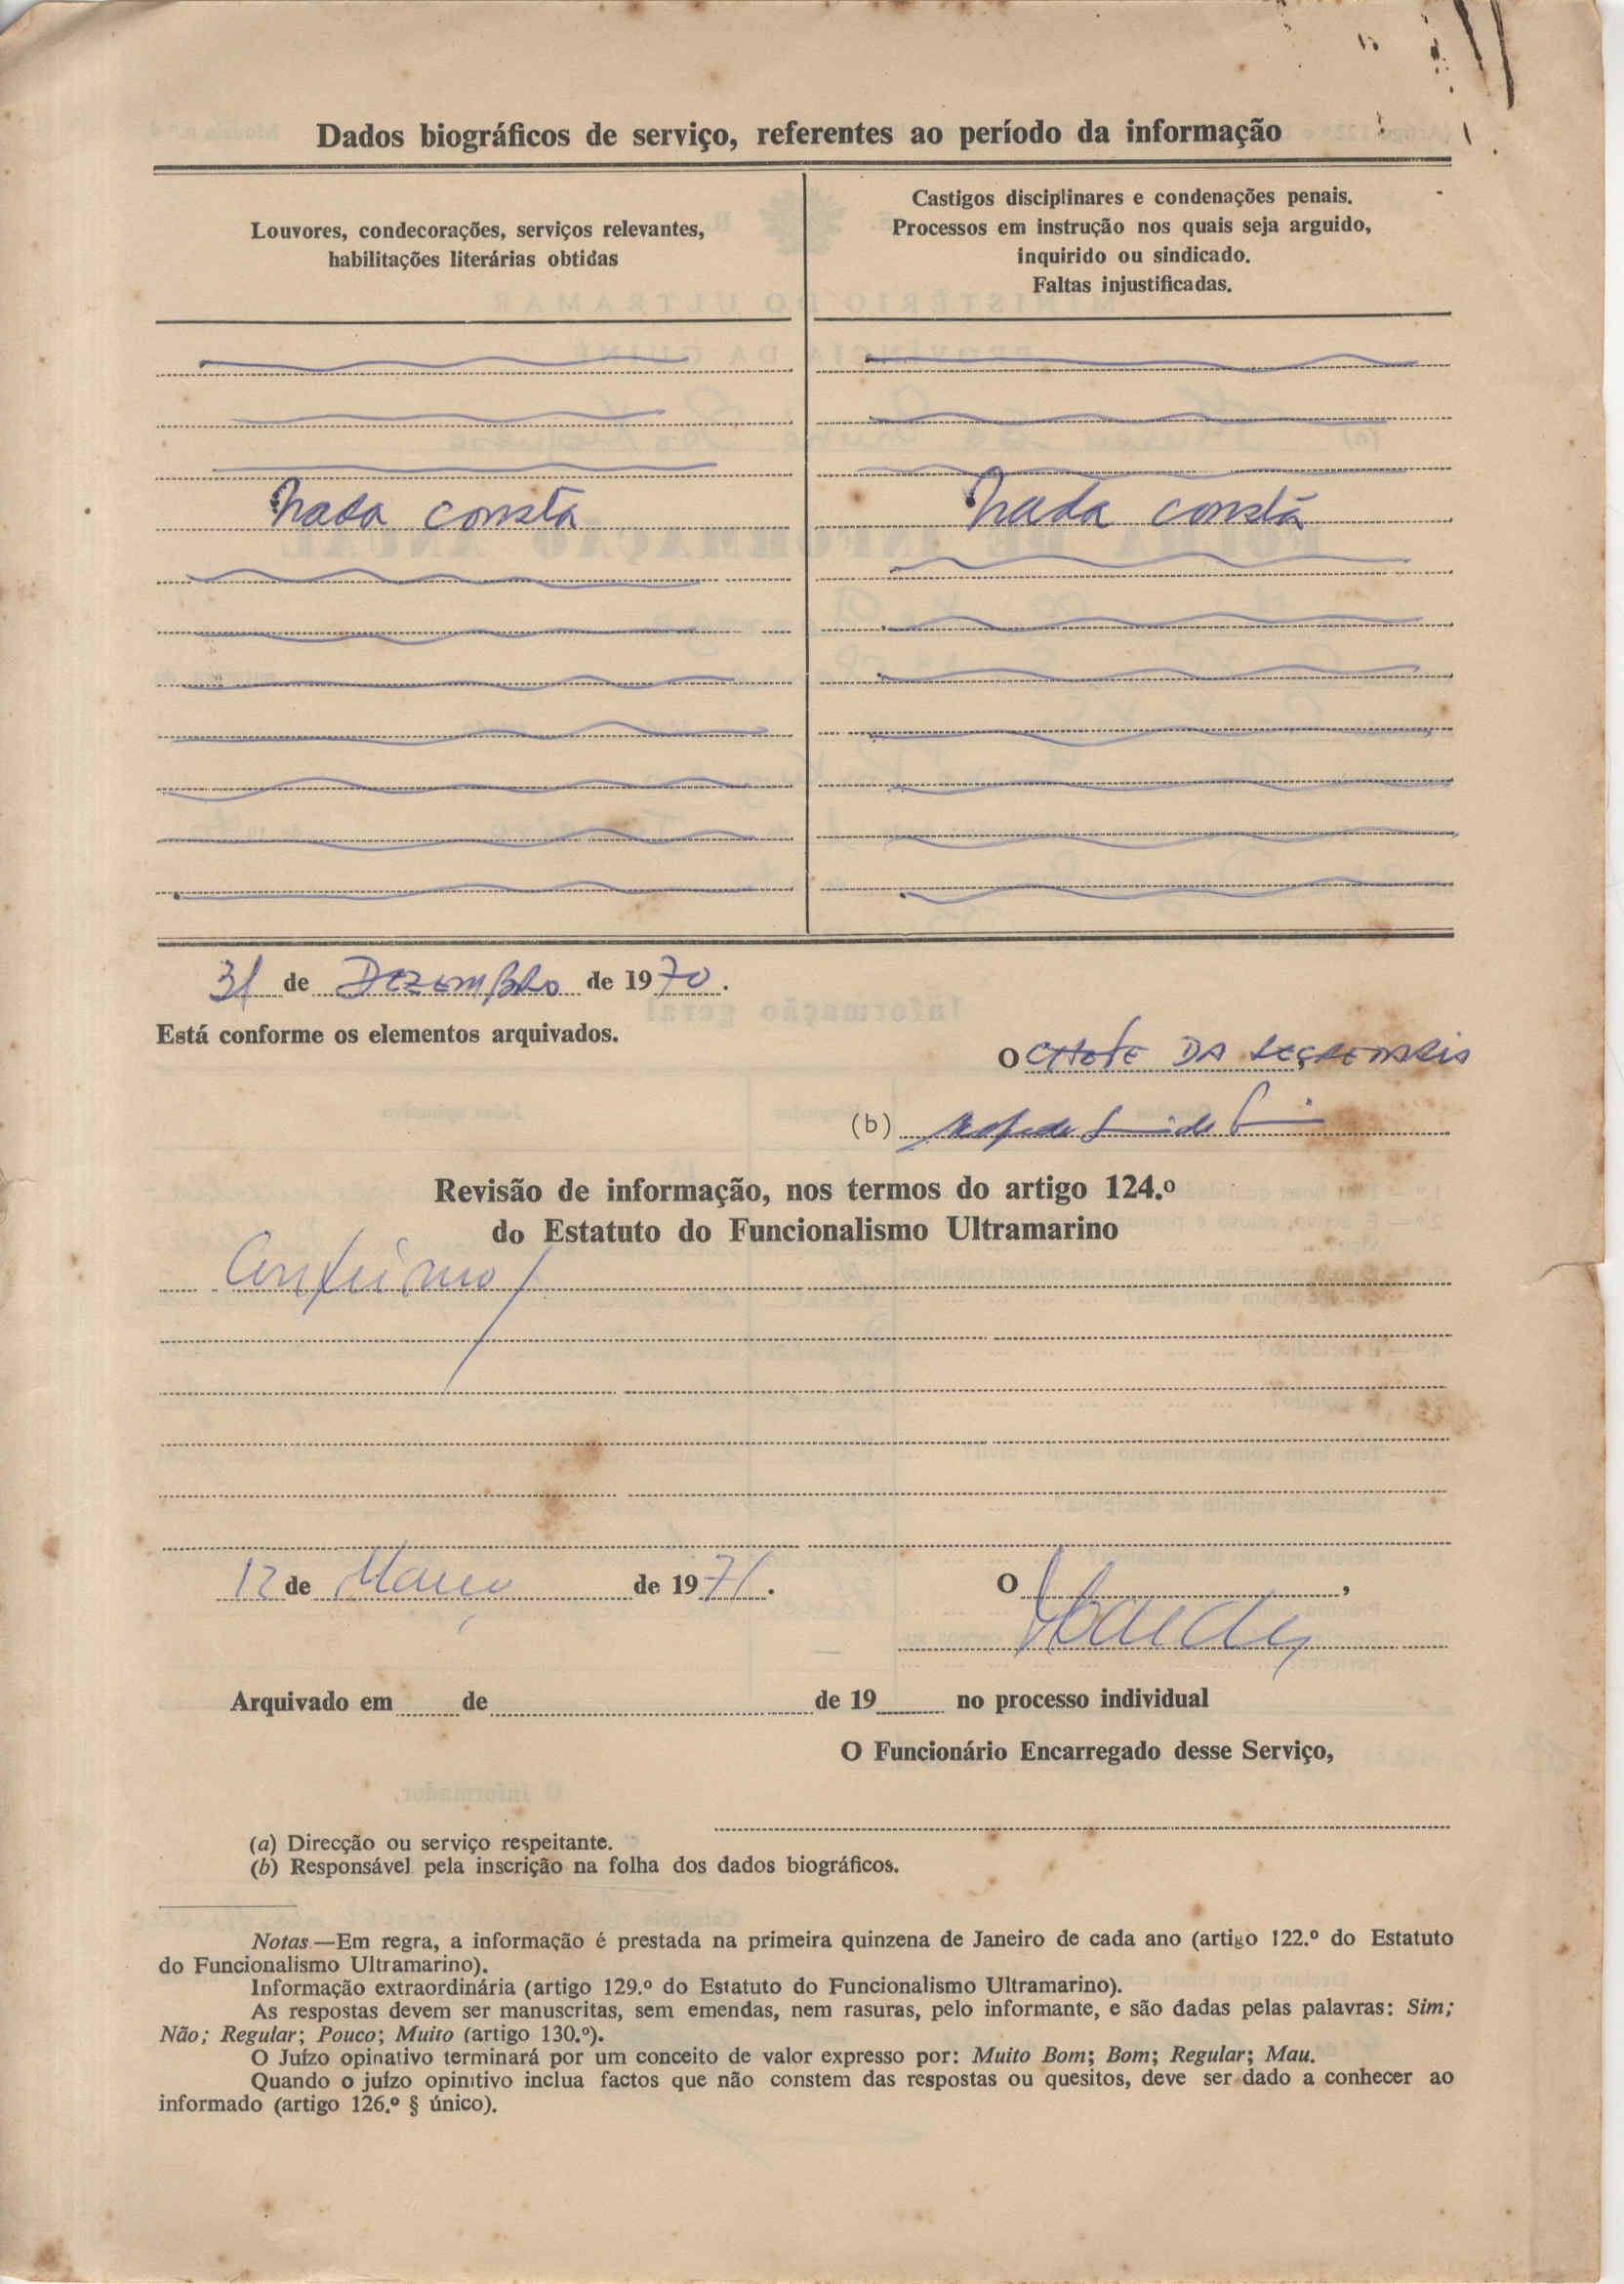 Dados biográficos de serviço, referentes ao período da informação
Louvores, condecorações, serviços relevantes,
habilitações literárias obtidas
Castigos disciplinares e condenações penais.
Processos em instrução nos quais seja arguido,
inquirido ou sindicado.
Faltas injustificadas.
Nada consta
Nada consta
31 de Dezembro de 1970.
Está conforme os elementos arquivados.
O CHEFE DA SECRETARIA
(b)
Revisão de informação, nos termos do artigo 124.º
do Estatuto do Funcionalismo Ultramarino
Confirmo
12 de Março de 1971.
O ,
Arquivado em de de 19 no processo individual
O Funcionário Encarregado desse Serviço,
(a) Direcção ou serviço respeitante.
(b) Responsável pela inscrição na folha dos dados biográficos.
Notas.—Em regra, a informação é prestada na primeira quinzena de Janeiro de cada ano (artigo 122.º do Estatuto
do Funcionalismo Ultramarino).
Informação extraordinária (artigo 129.º do Estatuto do Funcionalismo Ultramarino).
As respostas devem ser manuscritas, sem emendas, nem rasuras, pelo informante, e são dadas pelas palavras: Sim;
Não; Regular; Pouco; Muito (artigo 130.º).
O Juízo opinativo terminará por um conceito de valor expresso por: Muito Bom; Bom; Regular; Mau.
Quando o juízo opinitivo inclua factos que não constem das respostas ou quesitos, deve ser dado a conhecer ao
informado (artigo 126.º § único).